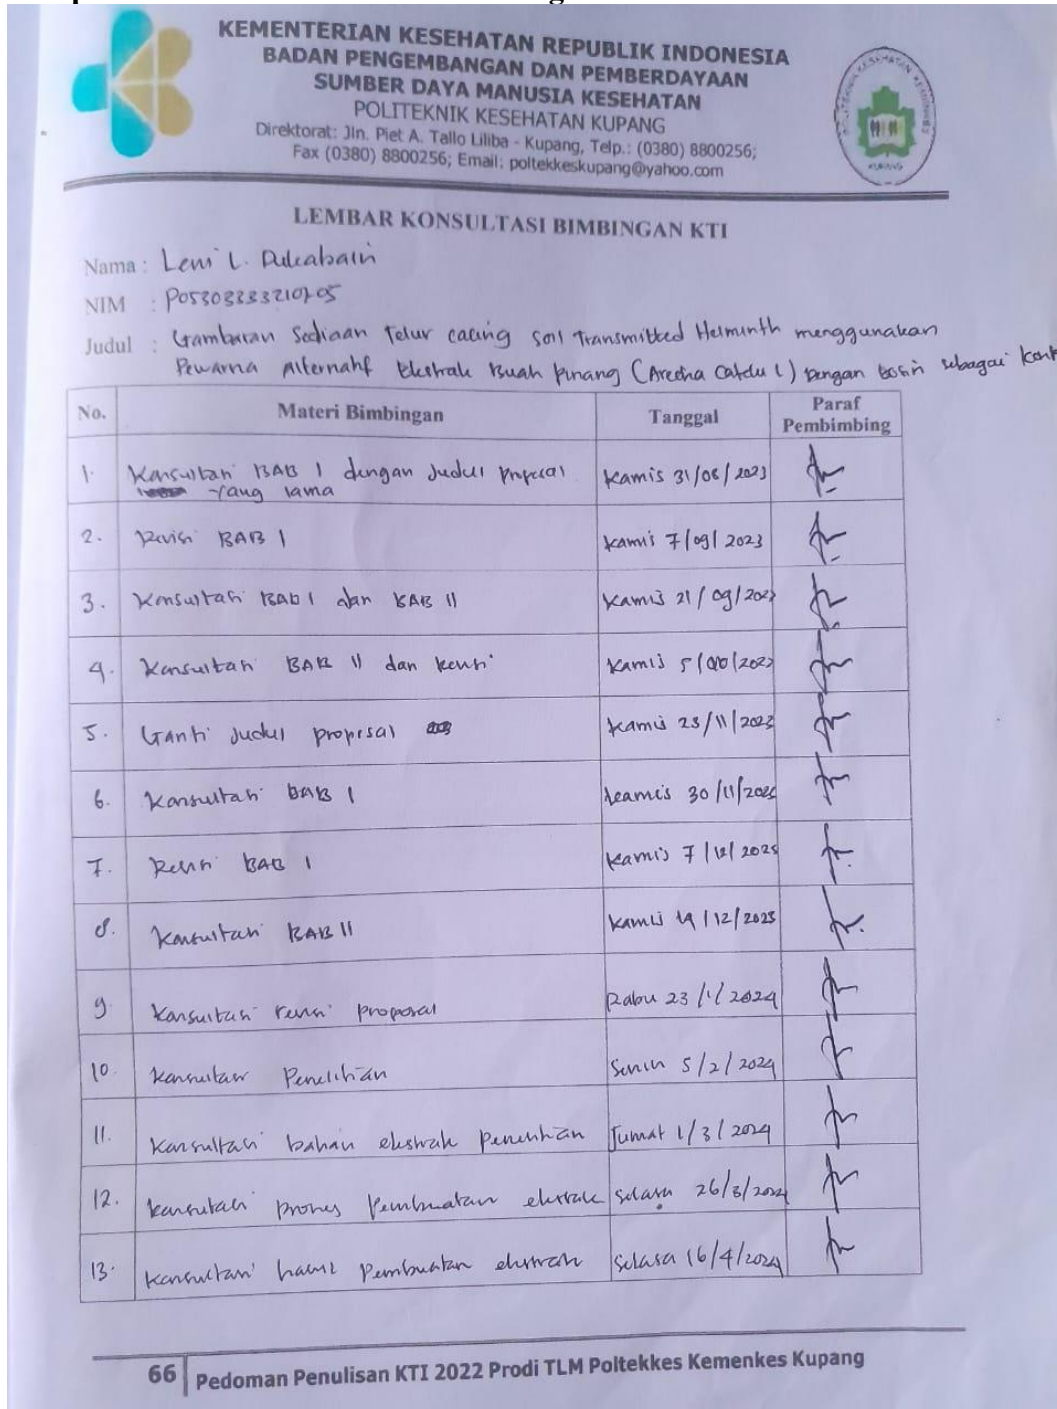 KEMENTERIAN KESEHATAN REPUBLIK INDONESIA
BADAN PENGEMBANGAN DAN PEMBERDAYAAN
SUMBER DAYA MANUSIA KESEHATAN
POLITEKNIK KESEHATAN KUPANG
Direktorat: Jln. Piet A. Tallo Liliba - Kupang, Telp.: (0380) 8800256;
Fax (0380) 8800256; Email: poltekkeskupang@yahoo.com
LEMBAR KONSULTASI BIMBINGAN KTI
Nama : Leni L.
NIM :
Judul : Gambaran Sediaan Telur cacing Soil Transmitted Helminth menggunakan
Pewarna Alternatif Ekstrak Buah Pinang (Arecha Catchu L) Dengan Eosin sebagai
No. Materi Bimbingan Tanggal Paraf Pembimbing
1. Konsultasi BAB I dengan Judul proposal yang lama Kamis 31/08/2023
2. Revisi BAB I Kamis 7/09/2023
3. Konsultasi BAB I dan BAB II Kamis 21/09/2023
4. Konsultasi BAB II dan revisi Kamis
5. Ganti Judul proposal Kamis 23/11/2023
6. Konsultasi BAB I Kamis 30/11/2023
7. Revisi BAB I Kamis 7/12/2023
8. Konsultasi BAB II Kamis 14/12/2023
9. Konsultasi revisi proposal Rabu 23/1/2024
10. Konsultasi Penelitian Senin 5/2/2024
11. Konsultasi bahan ekstrak penelitian Jumat 1/3/2024
12. Konsultasi proses Pembuatan ekstrak Selasa 26/3/2024
13. Konsultasi hasil Pembuatan ekstrak Selasa 16/4/2024
66 Pedoman Penulisan KTI 2022 Prodi TLM Poltekkes Kemenkes Kupang